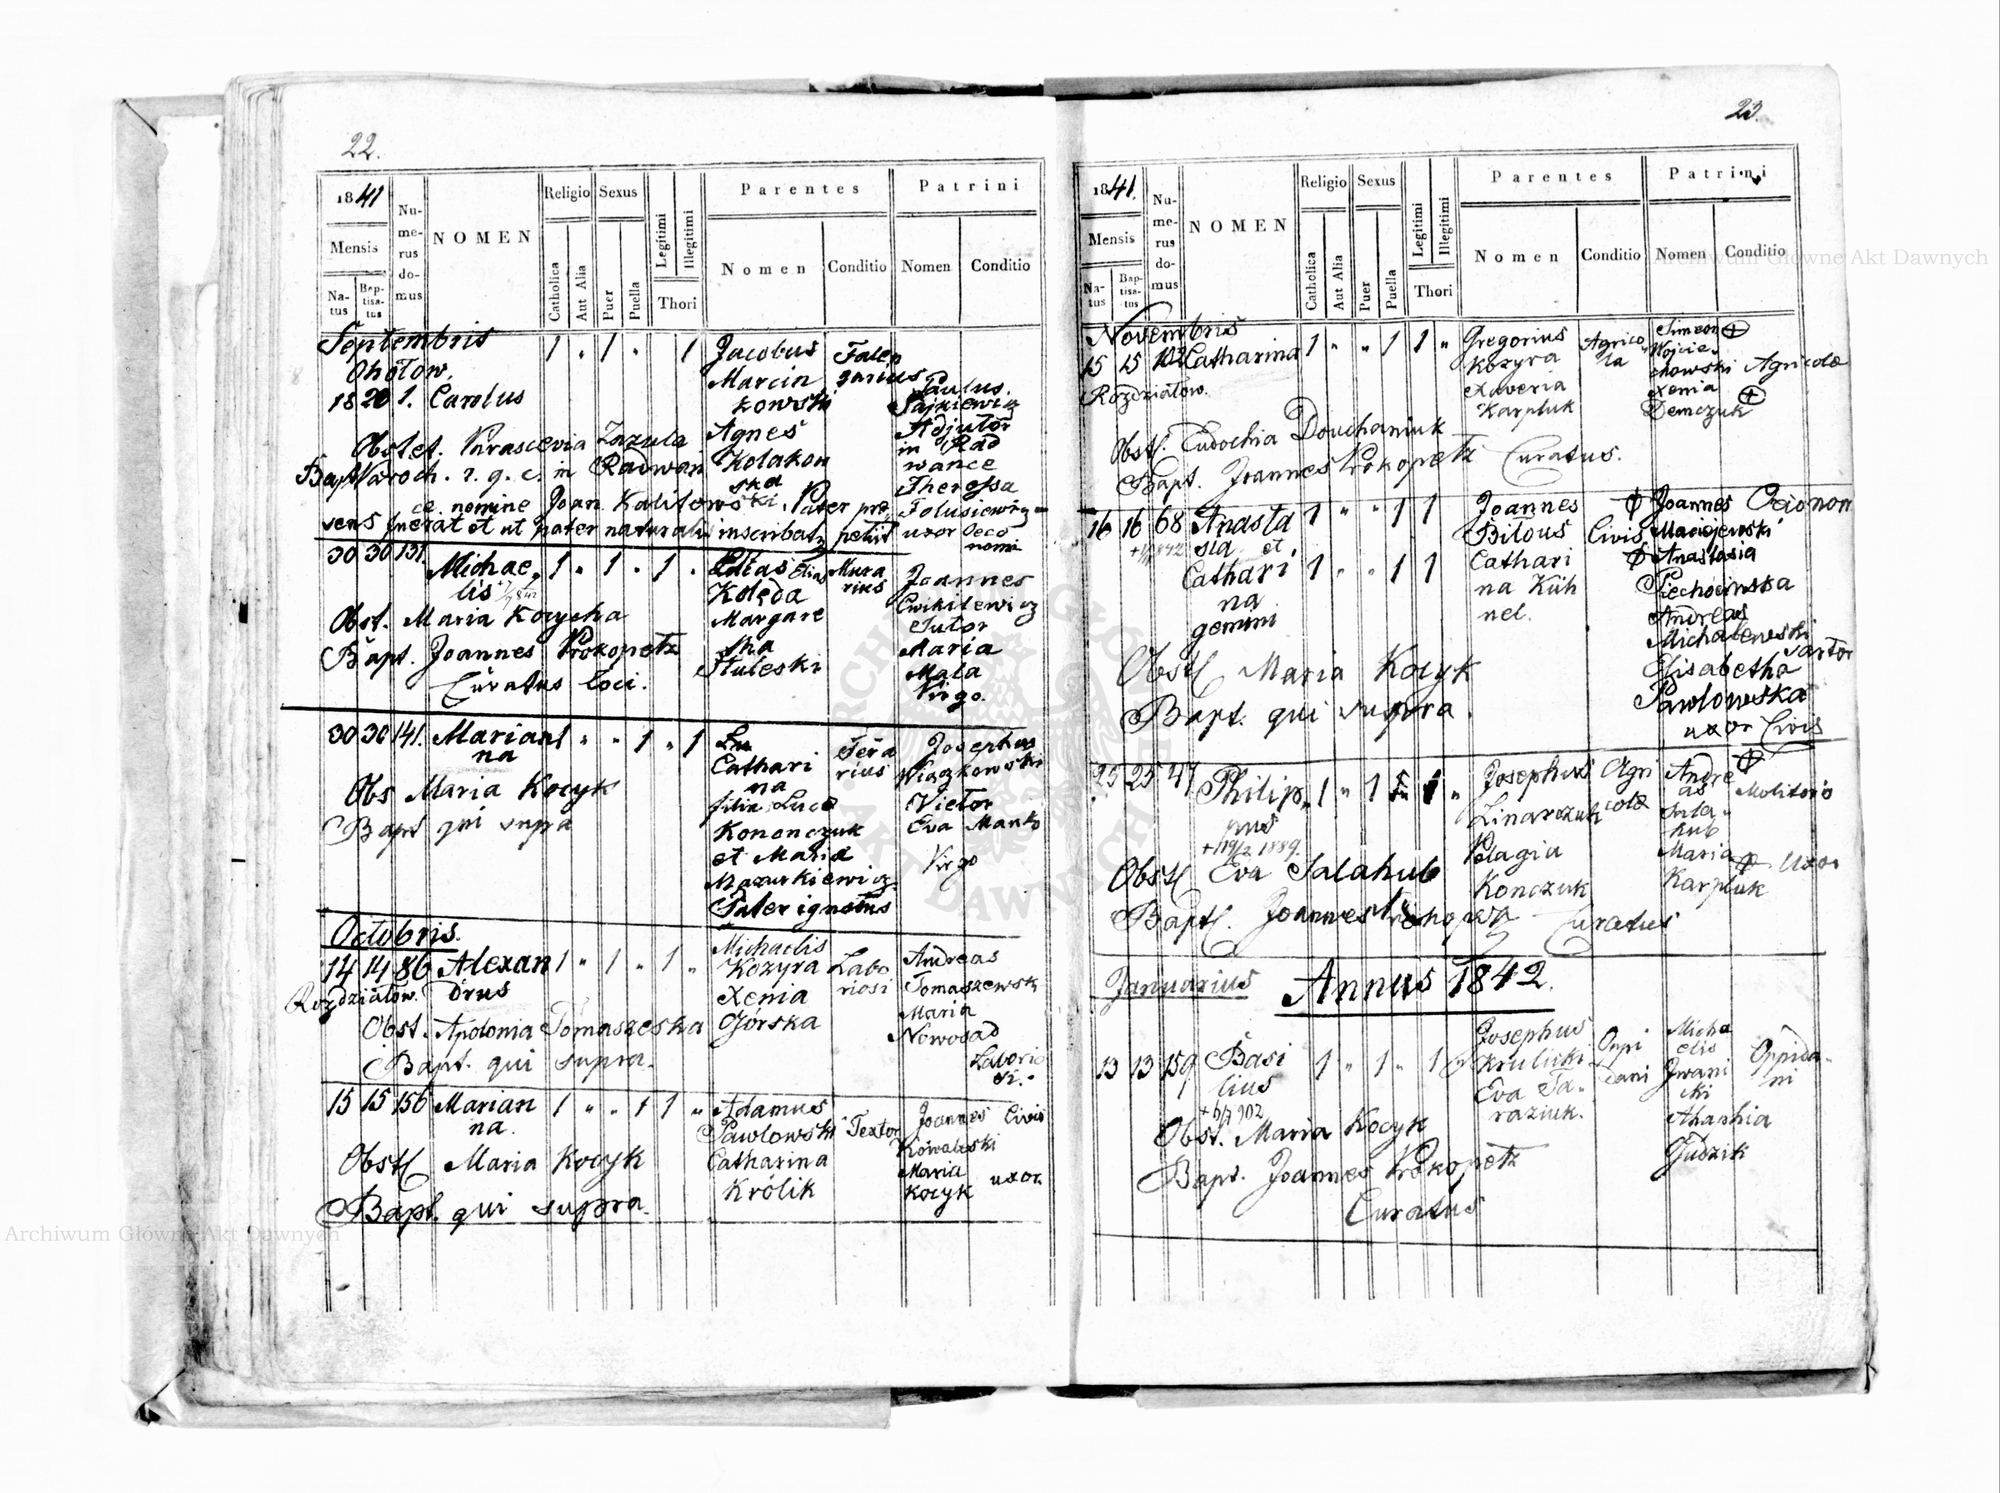 22.
1841
Mensis
Na-
tus
Bap-
tisa-
tus
Nu-
me-
rus
do-
mus
NOMEN
Religio
Catholica
Aut Alia
Sexus
Puer
Puella
Legitimi
Illegitimi
Thori
Parentes
Nomen
Conditio
Patrini
Nomen
Conditio
Septembris
Ohotow.
18 20 1. Carolus 1 " 1 " 1
Jacobus
Marcin
kowski
Agnes
Kolakow
ska
Paulus
Fajkiewicz
Adjutor
in Rad
wance
Theressa
uxor Oeco
nomi
Obstet. Parascevia Zazula
Bapt. Paroch. r. g. c. in Radwan
ce nomine Joan. Kalitowski. Pater pre
sens fuerat et ut pater naturalis inscribatur petiit
30 30 131. Michae
lis 1 " 1 " 1 "
Elias
Kolęda
Margare
tha
Stuleski
Mura
rius
Joannes
Cwikilewicz
Sutor
Maria
Mala
Virgo.
Obst. Maria Kocycha
Bapt. Joannes Prokopetz
Curatus loci.
30 30 141. Marian
na 1 " " 1 " 1
Cathari
na
filia Lucae
Kononczuk
et Maria
Mazurkiewicz
Pater ignotus
Josephus
Wiączkowski
Victor
Eva Manko
Virgo
Obs Maria Kocyk
Bapt qui supra
Octobris.
14 14 86 Alexan
drus 1 " 1 " 1 "
Rozdziatow.
Michaelis
Kozyra
Xenia
Górska
Labo
riosi
Andreas
Tomaszewsk
Maria
Nowosad
Laborio
si.
Obst. Apolonia Tomaszeska
Bapt. qui supra.
15 15 156 Marian
na. 1 " " 1 1 "
Adamus
Pawlowski
Catharina
Królik
Textor
Joannes Civis
Kowaleski
Maria
Kocyk uxor
Obst Maria Kocyk
Bapt. qui supra.
23.
1841.
Mensis
Na-
tus
Bap-
tisa-
tus
Nu-
me-
rus
do-
mus
NOMEN
Religio
Catholica
Aut Alia
Sexus
Puer
Puella
Legitimi
Illegitimi
Thori
Parentes
Nomen
Conditio
Patrini
Nomen
Conditio
Novembris
15 15 102 Catharina 1 " " 1 1 "
Rozdziatow.
Gregorius
Kozyra
Xaveria
Karpluk
Agrico
la
Simeon
Wojcie
chowski Agricola
Xenia
Demczuk
Obst. Eudochia Douchaniuk
Bapt. Joannes Prokopetz Curatus.
16 16 68 Anasta
sia et
Cathari
na
gemini
1 " " 1 1
1 " " 1 1
Joannes
Bilous
Cathari
na Küh
nel.
Civis
Joannes
Maciejewski
Anastasia
Piechocinska
Andreas
Michalewski
Sartor
Elisabetha
Pawlowska
uxor Civis
Obst Maria Kocyk
Bapt. qui supra.
25 25 47 Philip
pus
Josephus
Linarczuk
Pelagia
Konczuk
Agri
cola
Andre
as
Sala
hub
Maria
Karpluk
Molitoris
Uxor
Obst Eva Salahub
Bapt. Joannes Curatus
Januarius Annus 1842.
13 13 159 Basi
lius 1 " 1 " 1
Josephus
Krulicki
Eva Ta
raziuk.
Oppi
dani
Micha
elis
Jwani
cki
Ahaphia
Gudzik
Oppida
ni
Obst. Maria Kocyk
Bapt. Joannes Prokopetz
Curatus
Archiwum Główne Akt Dawnych
Archiwum Główne Akt Dawnych